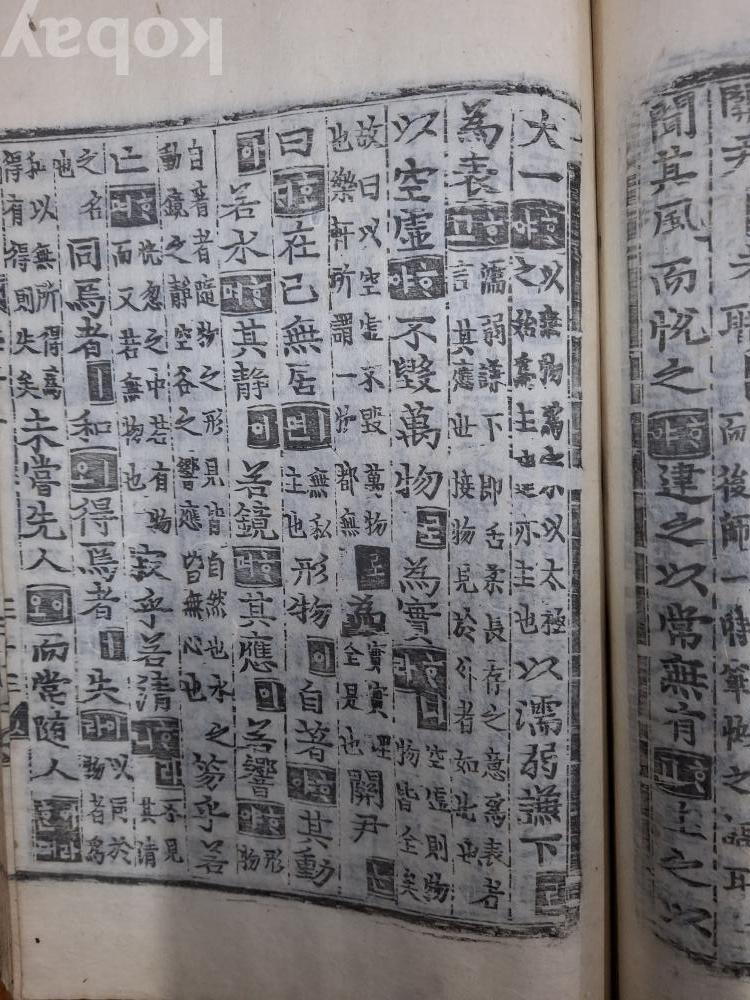 關尹
而後師
聞其風而悅之ᄒᆞ야建之以常無有ᄒᆞ고主之以
大一ᄒᆞ야以無物爲之小以太極之始爲主也亦主也以濡弱謙下로
為表ᄒᆞ고濡弱謙下即舌柔長存之意爲表者言其應世接物見於外者如此也
以空虛ᄒᆞ야不毀萬物로為實ᄒᆞ니空虛則物物皆全矣
故曰以空虛不毀萬物로為實實理也樂軒所謂一物都無全是也關尹
曰在己無居면無私主也形物이自著ᄒᆞ야其動
若水ᄒᆞ며其靜이若鏡ᄒᆞ며其應이若響ᄒᆞ야形物
自著者隨物之形見皆自然也水之動鏡之靜空谷之響應皆無心也芴乎若
亡ᄒᆞ며恍忽之中若有物而又若無物也寂乎若清ᄒᆞ니라不見其清
之名也同焉者ㅣ和오得焉者ㅣ失이라以同於物者爲
和以無所得爲得有得則失矣未嘗先人이오而常隨人ᄒᆞ니라
kobay